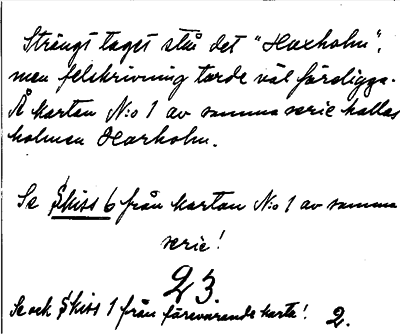 Strängt taget står det "Haxholm",
men felskrivning torde väl föreligga.
Å kartan N:o 1 av samma serie kallas
holmen Harholm.
Se Skiss 6 från kartan N:o 1 av samma
serie!
23.
Se ock Skiss 1 från försvarande karta! 2.